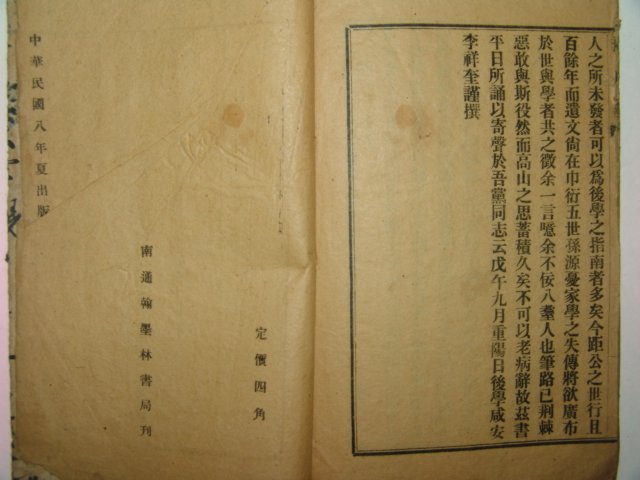 人之所未發者可以爲後學之指南者多矣今距公之世行且
百餘年而遺文尙在巾衍五世孫源憂家學之失傳將欲廣布
於世與學者共之徵余一言噫余不佞八耋人也筆路已荆棘
惡敢與斯役然而高山之思蓄積久矣不可以老病辭故茲書
平日所誦以寄聲於吾黨同志云戊午九月重陽日後學咸安
李祥奎謹撰
定價四角
南通翰墨林書局刊
中華民國八年夏出版